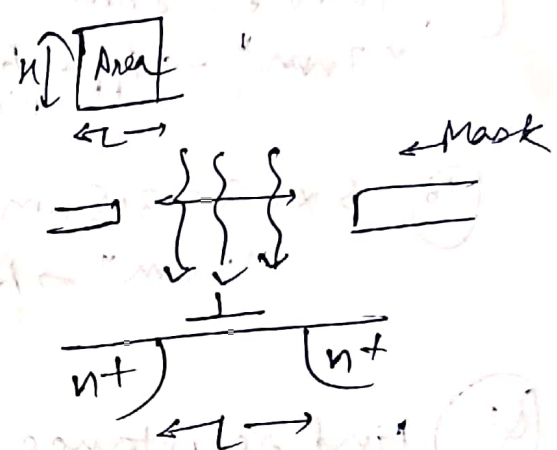 Area
L
Mask
n+
n+
L